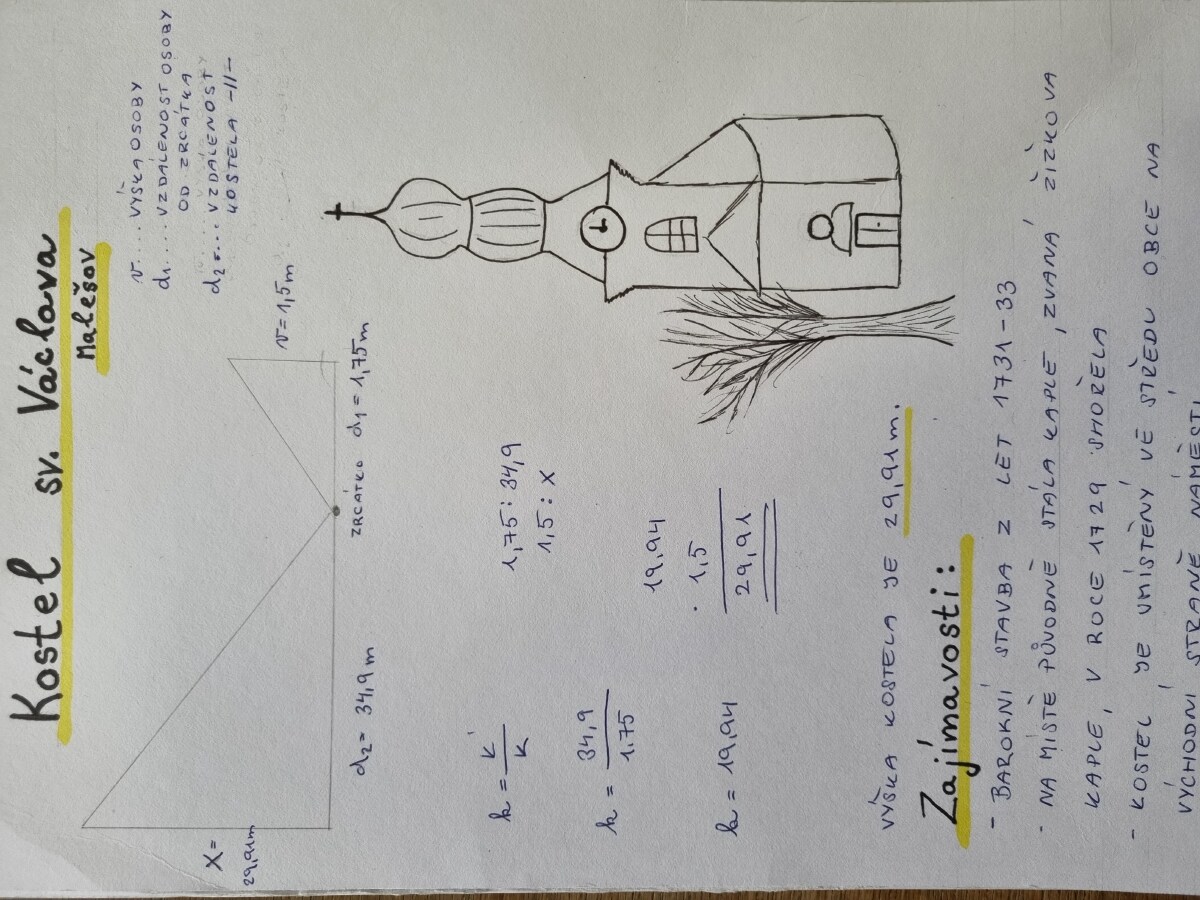 Kostel sv. Václava
Malešov
v.... VÝŠKA OSOBY
d1.... VZDÁLENOST OSOBY
OD ZRCÁTKA
d2.... VZDÁLENOST
KOSTELA -II-
X=
29,91m
v=1,5m
d2= 34,9m
ZRCÁTKO
d1=1,75m
k = K'/K
1,75:34,9
1,5:X
k = 34,9/1,75
k = 19,94
19,94
· 1,5
29,91
VÝŠKA KOSTELA JE 29,91m.
Zajímavosti:
- BAROKNÍ STAVBA Z LET 1731-33
- NA MÍSTĚ PŮVODNĚ STÁLA KAPLE, ZVANÁ ŽIŽKOVA
KAPLE, V ROCE 1729 SHOŘELA
- KOSTEL JE UMÍSTĚNÝ VE STŘEDU OBCE NA
VÝCHODNÍ STRANĚ NÁMĚSTÍ